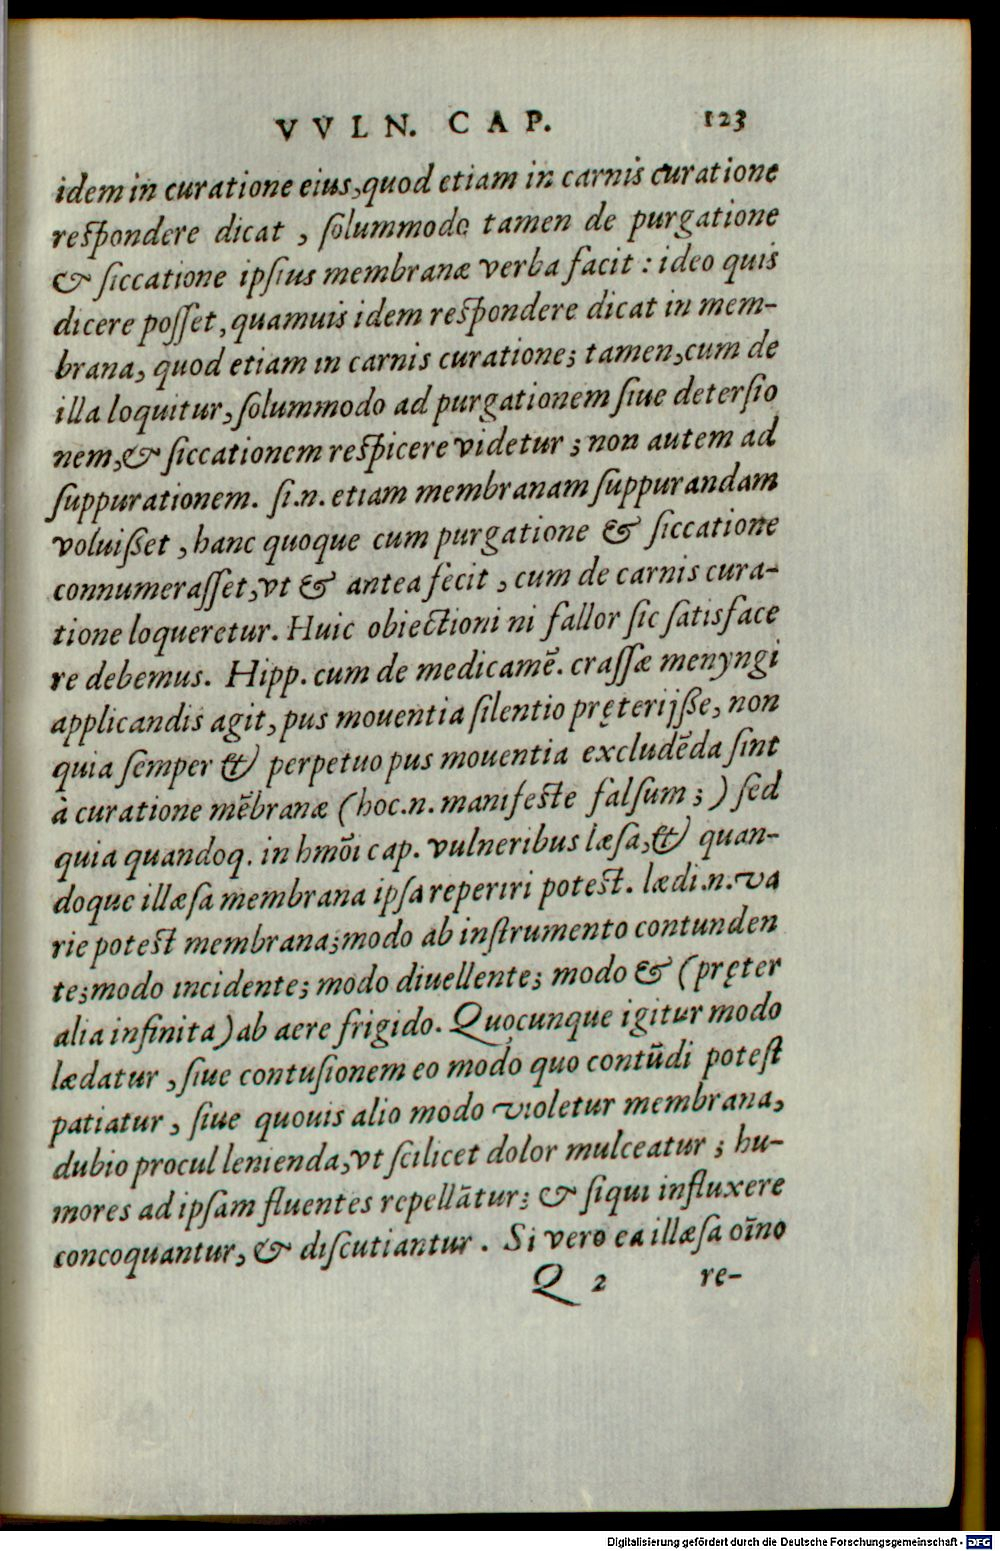 VVLN. CAP. 123
idem in curatione eius, quod etiam in carnis curatione
reſpondere dicat, ſolummodo tamen de purgatione
& ſiccatione ipſius membranæ verba facit: ideo quis
dicere poſſet, quamuis idem reſpondere dicat in mem-
brana, quod etiam in carnis curatione; tamen, cum de
illa loquitur, ſolummodo ad purgationem ſiue deterſio
nem, & ſiccationem reſpicere videtur; non autem ad
ſuppurationem. ſi.n. etiam membranam ſuppurandam
voluißet, hanc quoque cum purgatione & ſiccatione
connumeraſſet, vt & antea fecit, cum de carnis cura-
tione loqueretur. Huic obiectioni ni fallor ſic ſatisface
re debemus. Hipp. cum de medicamē. craſſæ menyngi
applicandis agit, pus mouentia ſilentio pręterijße, non
quia ſemper & perpetuo pus mouentia excludēda ſint
à curatione mēbranæ (hoc.n. manifeſte falſum;) ſed
quia quandoq. in hmōi cap. vulneribus læſa, & quan-
doque illæſa membrana ipſa reperiri poteſt. lædi.n. va
rie poteſt membrana; modo ab inſtrumento contunden
te; modo incidente; modo diuellente; modo & (pręter
alia infinita) ab aere frigido. Quocunque igitur modo
lædatur, ſiue contuſionem eo modo quo contūdi poteſt
patiatur, ſiue quouis alio modo violetur membrana,
dubio procul lenienda, vt ſcilicet dolor mulceatur; hu-
mores ad ipſam fluentes repellātur; & ſiqui influxere
concoquantur, & diſcutiantur. Si vero ea illæſa oīno
Q 2 re-
Digitalisierung gefördert durch die Deutsche Forschungsgemeinschaft - DFG